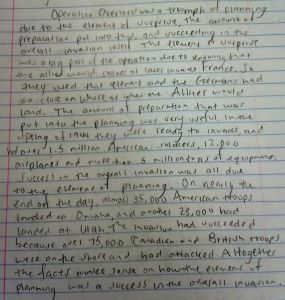 Operation Overlord was a triumph of planning
due to the element of surprise, the amount of
preparation put into this, and succeeding in the
overall invasion itself. The element of surprise
was a big part of the operation due to knowing that
the allied would sooner or later invade France. So
they used this element and the Germans had
no clue on where or when the Allies would
land. The amount of preparation that was
put into the planning was very useful. In the
spring of 1944 they were ready to invade, and
had over 1.5 million American soldiers, 12,000
airplanes and more than 5 million tons of equipment.
Success in the overall invasion was all due
to the element of planning. On nearly the
end of the day, almost 35,000 American troops
landed on Omaha, and another 23,000 had
landed at Utah. The invasion had succeeded
because over 75,000 Canadian and British troops
were on the shore and had attacked. Altogether
the facts make sense on how the element of
planning was a success in the overall invasion.